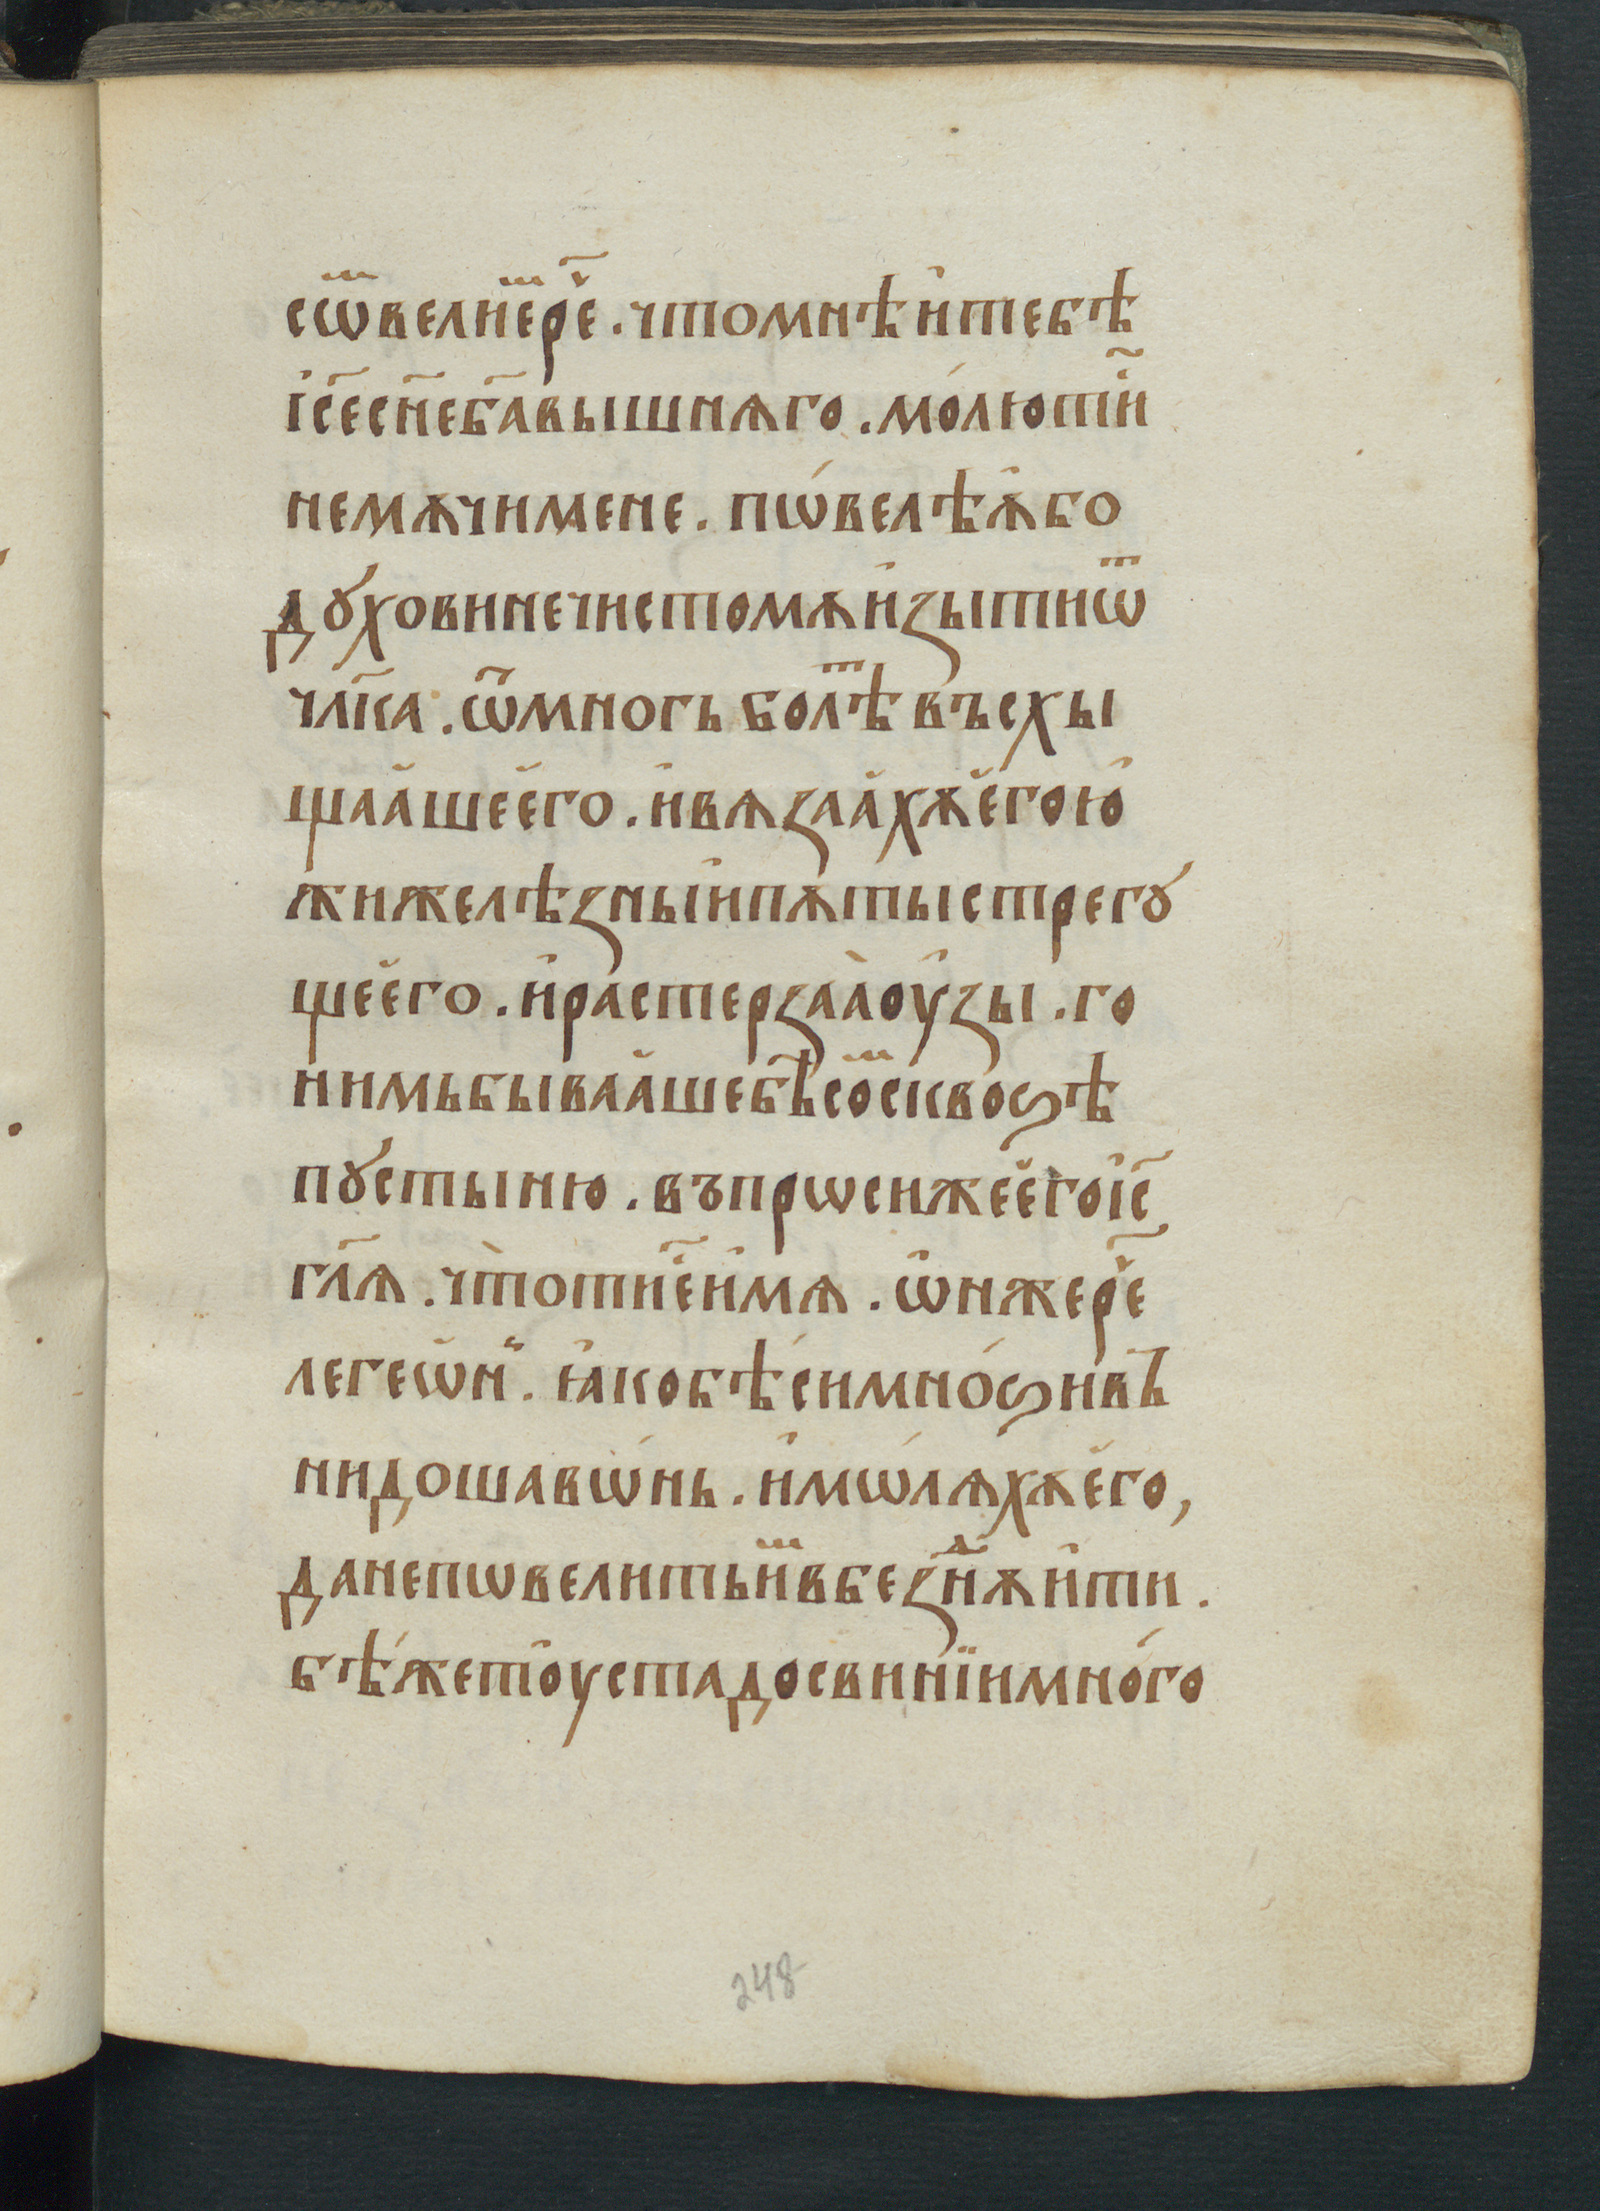 сѡ҆ⷨ велїе҆ⷨ ре҆ч҃е . что мнѣ и҆ тебѣ
і҆с҃е сн҃е б҃а вышнѧго . мо́лю ти҃ и҆
не мѫчи мене . пѡ́велѣ ѧ҆ бо
дꙋхови нечистомѫ и҆зыти ѿ
чл҃ка . ѿ҆ многь бо лѣⷮ въсхы
щаа҆ше е҆го . и҆ вѧзаа҆хѫ е҆го ю҆
жи желѣзны и҆ пѫты стрегꙋ
ще е҆го . и҆ растерзаа̀ оу҆зы . го
нимь быва́аше бѣсоⷨ сквоѕѣ
пꙋстыню . въпрѡси же е҆го і҆с҃
гл҃ѧ . что̀ ти е҆҃ и҆мѧ . ѡ҆н же ре҆ч҃е
легеѡ҆нⸯ . ꙗ҆ко бѣ́си мно́ѕи въ
нидоша вѡ́нь . и҆ мѡ́лѧхѫ е҆го ,
да не пѡвелить и҆ⷨ в безⷣнѫ и҆ти .
бѣ́ же тоу҆ стадо свинїи мно́го
248